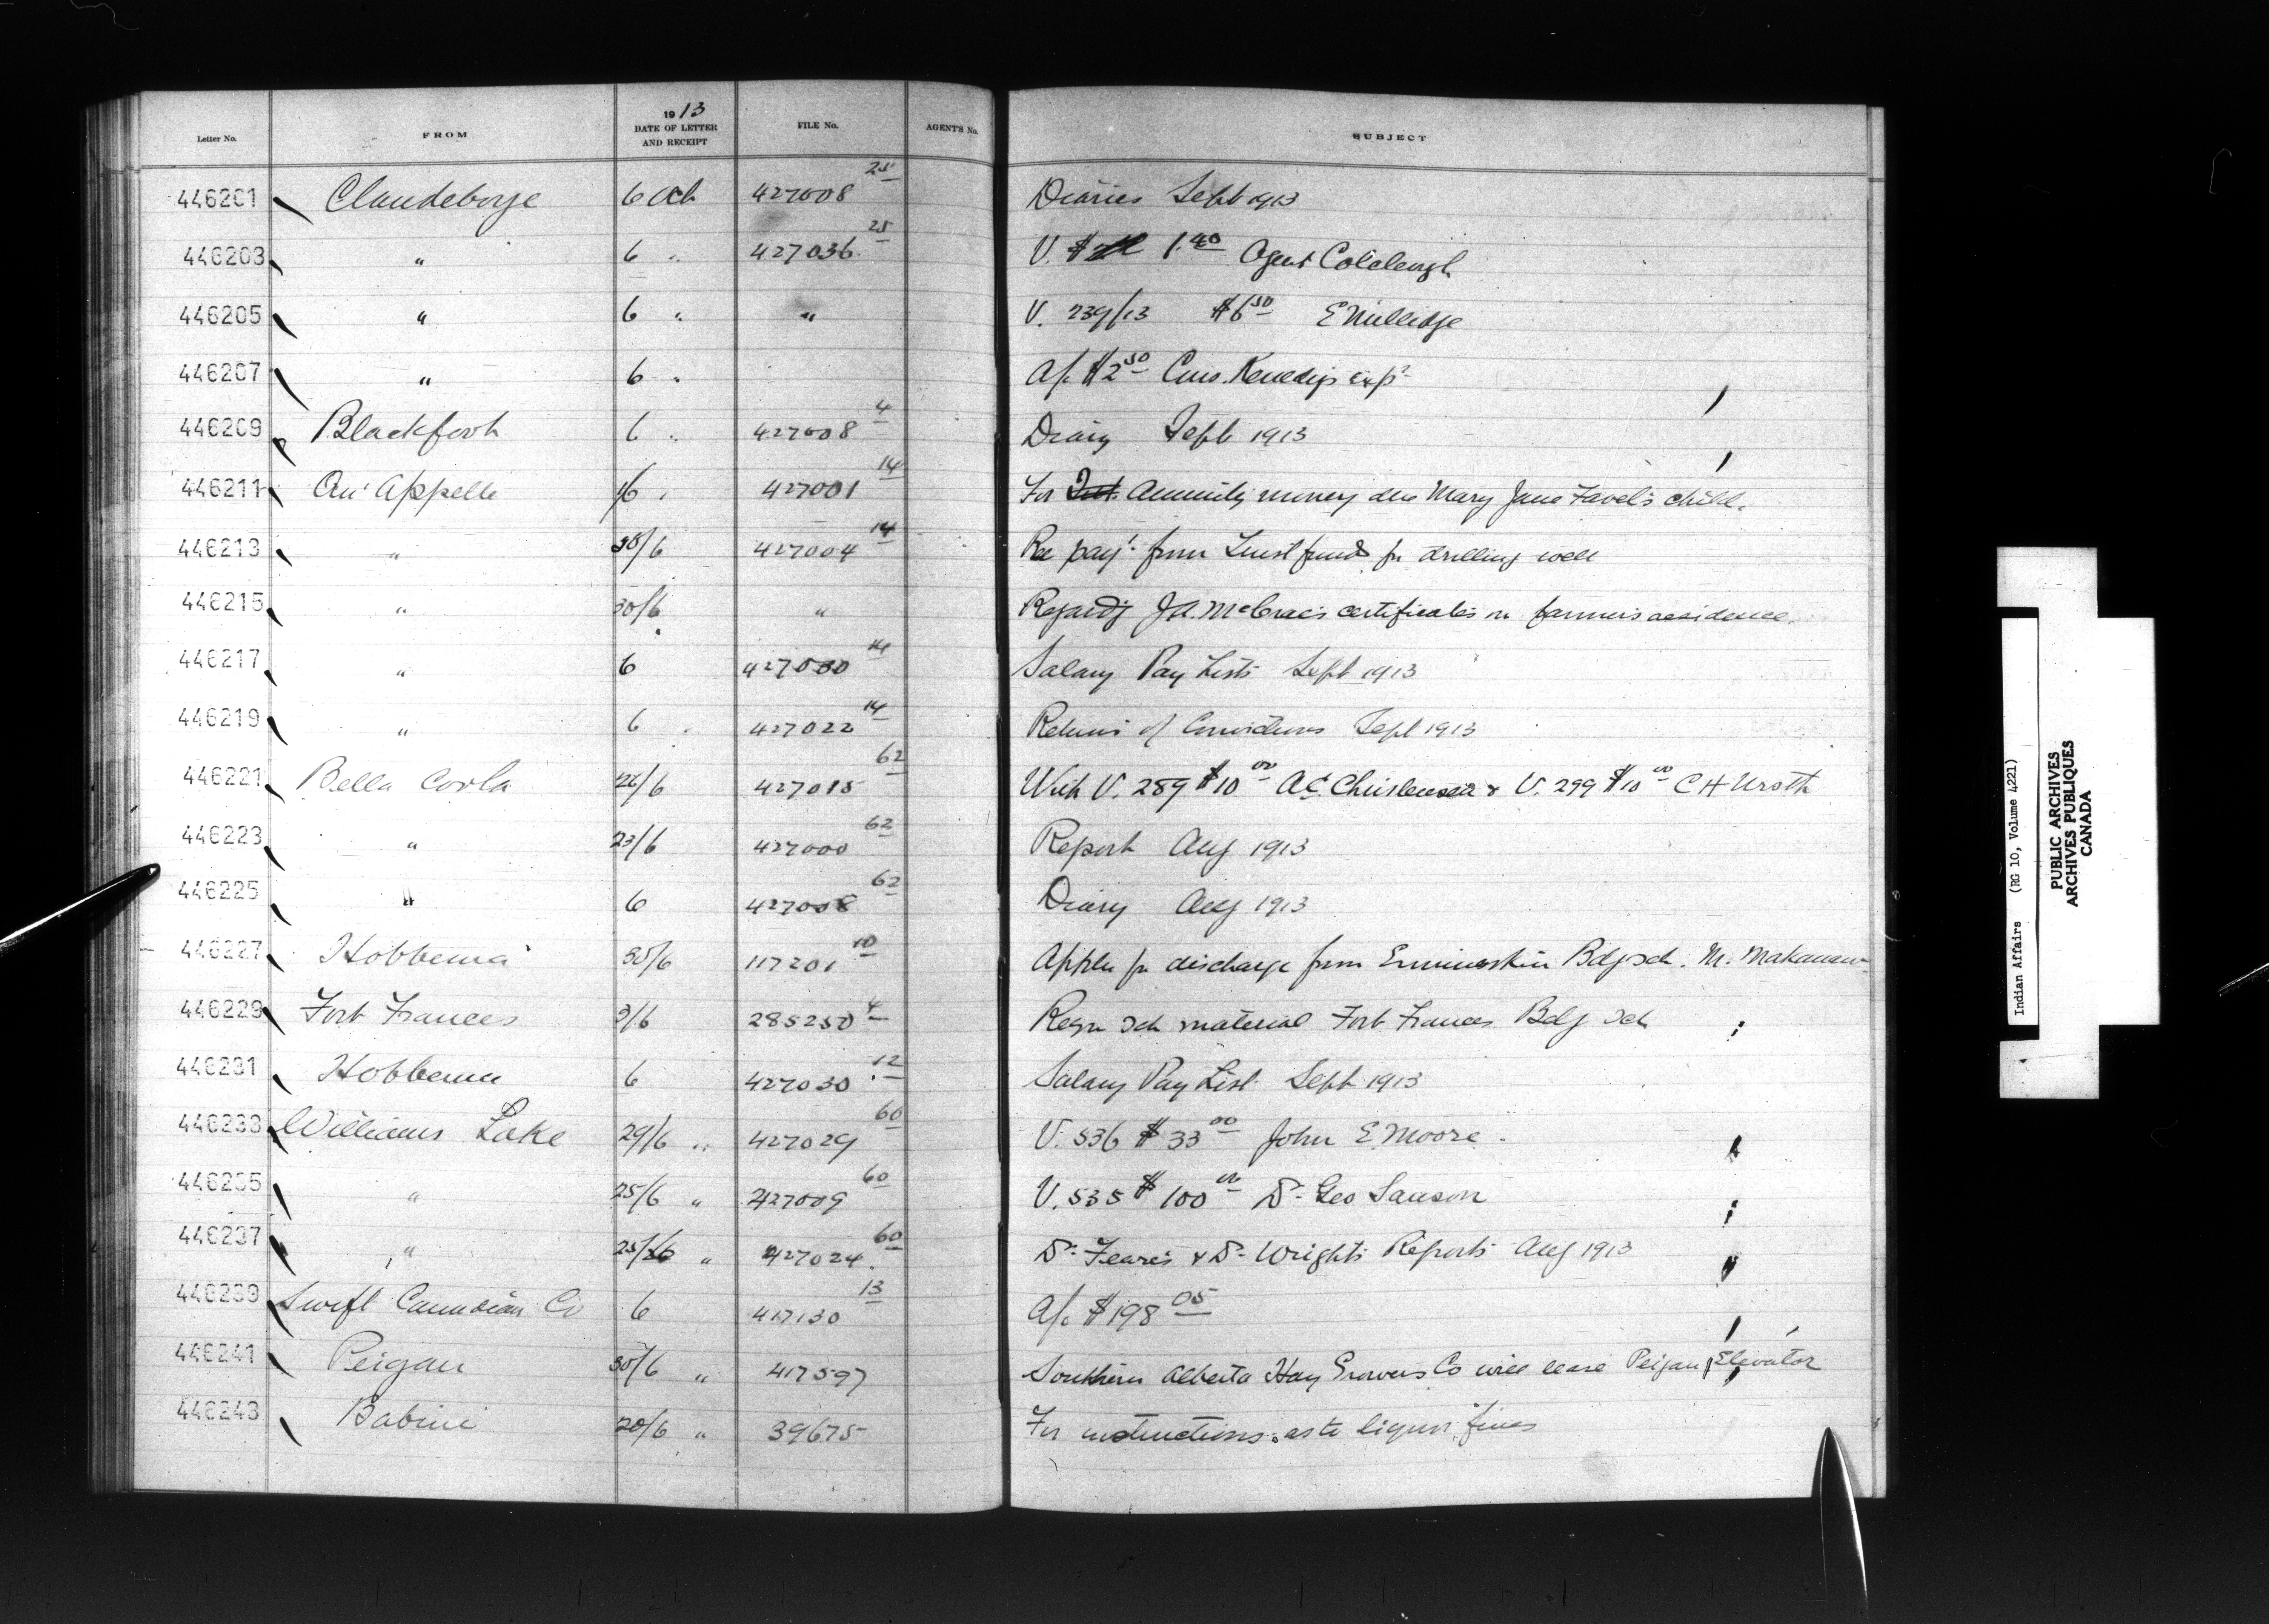 Letter No. FROM 1913 DATE OF LETTER AND RECEIPT FILE No. AGENT'S No. SUBJECT
446201 Clandeboye 6 Oct 427008 25 Diaries Sept 1913
446203 " 6 " 427036 25 V. $ 1.40 Agent
446205 " 6 " " V. 239/13 $6.50 E Milledge
446207 " 6 " A/c $2.50 Cons. Kenedys exps
446209 Blackfoot 6 " 427008 4 Diary Sept 1913
446211 Qu'Appelle 1/6 " 427001 14 For Annuity money due Mary Jane Favel's child.
446213 " 30/6 427004 14 Re payt. from Trust funds for drilling well
446215 " 30/6 " Regardg J.A. McCrae's certificates re farmers residence.
446217 " 6 427030 14 Salary Pay Lists Sept 1913
446219 " 6 " 427022 14 Returns of Convictions Sept 1913
446221 Bella Coola 26/6 427015 62 With V. 289 $10.00 A.C. Christensen & V. 299 $10.00 C H Urseth
446223 " 23/6 427000 62 Report Aug 1913
446225 " 6 427008 62 Diary Aug 1913
446227 Hobbema 30/6 117201 10 Appln for discharge from Ermineskin Bdg sch. M.
446229 Fort Frances 3/6 285250 4 Reqn Sch material Fort Frances Bdg Sch
446231 Hobbema 6 427030 12 Salary Pay List Sept 1913
446233 Williams Lake 29/6 " 427029 60 V. 536 $33.00 John E. Moore.
446235 " 25/6 " 427009 60 V. 535 $100.00 Dr. Geo Sanson
446237 " 25/26 " 427024 60 Dr. Feare's & Dr. Wright's Reports Aug 1913
446239 Swift Canadian Co 6 417130 13 A/c $198.05
446241 Peigan 30/6 " 417597 Southern Alberta Hay Growers Co will lease Peigan Elevator
446243 Babine 20/6 " 39675 For instructions as to liquor fines
Indian Affairs (RG 10, Volume 4221)
PUBLIC ARCHIVES
ARCHIVES PUBLIQUES
CANADA